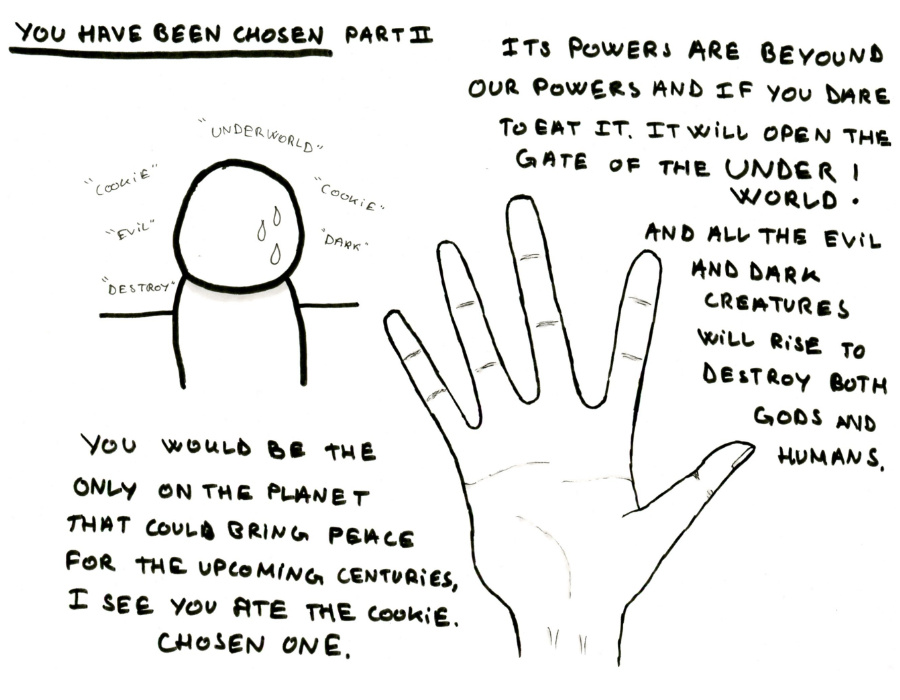 YOU HAVE BEEN CHOSEN PART II
ITS POWERS ARE BEYOUND
OUR POWERS AND IF YOU DARE
TO EAT IT. IT WILL OPEN THE
GATE OF THE UNDER !
WORLD .
AND ALL THE EVIL
AND DARK
CREATURES
WILL RISE TO
DESTROY BOTH
GODS AND
HUMANS.
"UNDERWORLD"
"COOKIE"
"COOKIE"
"EVIL"
"DARK"
"DESTROY"
YOU WOULD BE THE
ONLY ON THE PLANET
THAT COULD BRING PEACE
FOR THE UPCOMING CENTURIES,
I SEE YOU ATE THE COOKIE.
CHOSEN ONE.